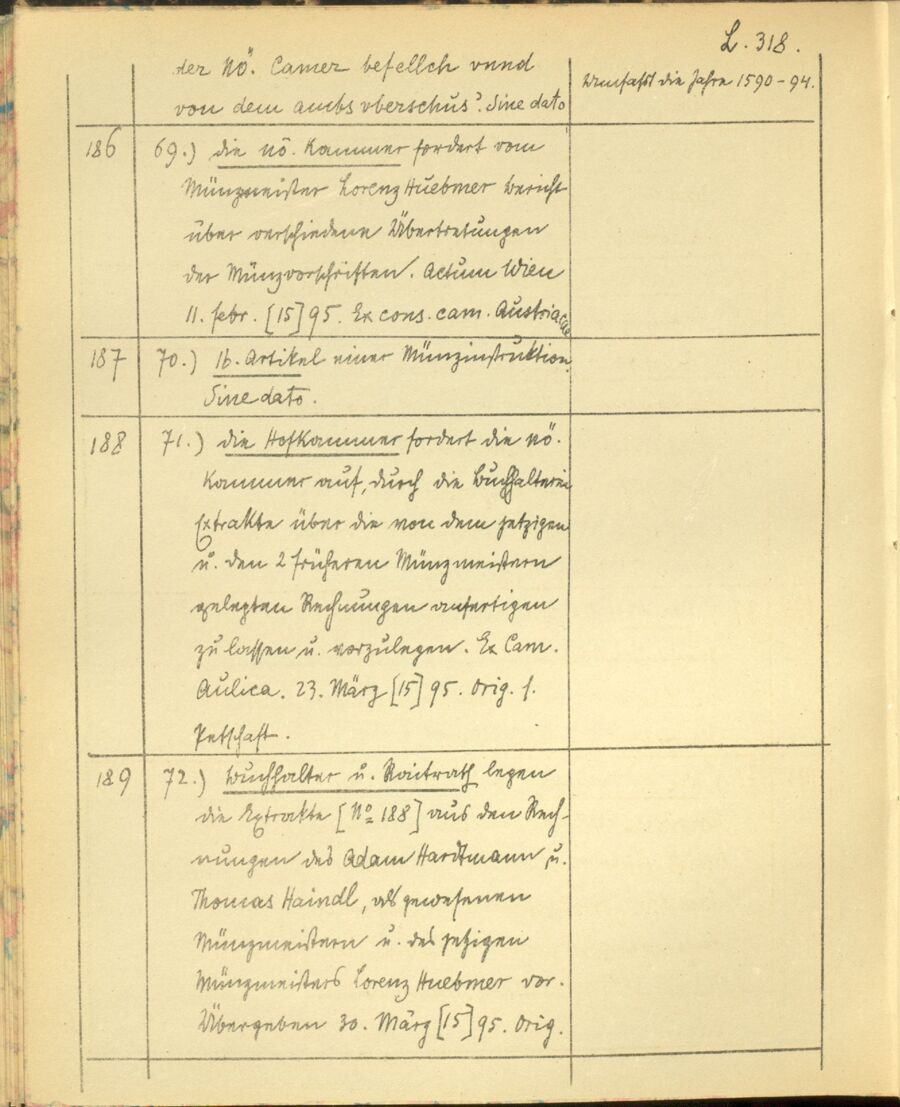 L. 318.
der NÖ. Camer befellch vnnd
von dem ambs vberschus? Sine dato
Umfasst die Jahre 1590-94.
186 69.) die nö. Kammer fordert vom
Münzmeister Lorenz Huebmer Bericht
über verschiedene Übertretungen
der Münzvorschriften. Actum Wien
11. febr. [15]95. Ex cons. cam. Austriacae
187 70.) 16. Artikel einer Münzinstruktion.
Sine dato.
188 71.) die Hofkammer fordert die nö.
Kammer auf, durch die Buchhalterei
Extrakte über die von dem jetzigen
u. den 2 früheren Münzmeistern
gelegten Rechnungen anfertigen
zu lassen u. vorzulegen. Ex Cam.
Aulica. 23. März [15]95. Orig. s.
Petschaft.
189 72.) Buchhalter u. Raitrath legen
die Extrakte [No 188] aus den Rech-
nungen des Adam Hardtmann u.
Thomas Haindl, als gewesenen
Münzmeistern u. des jetzigen
Münzmeisters Lorenz Huebmer vor.
Übergeben 30. März [15]95. Orig.